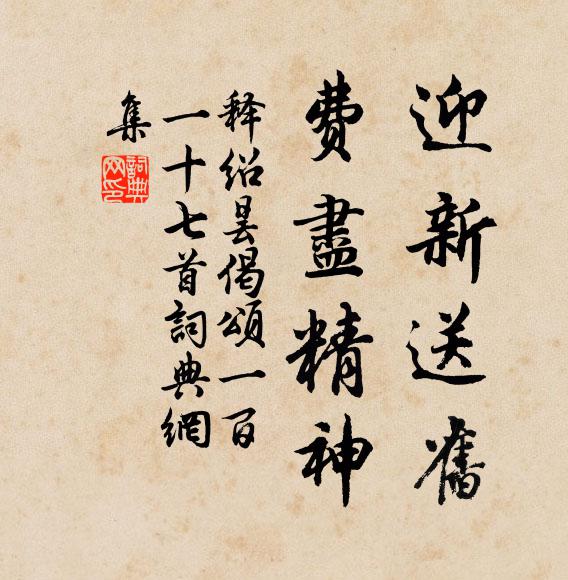 迎新送舊
費盡精神
釋紹曇偈頌一百
一十七首詞典網
集
詞典網印